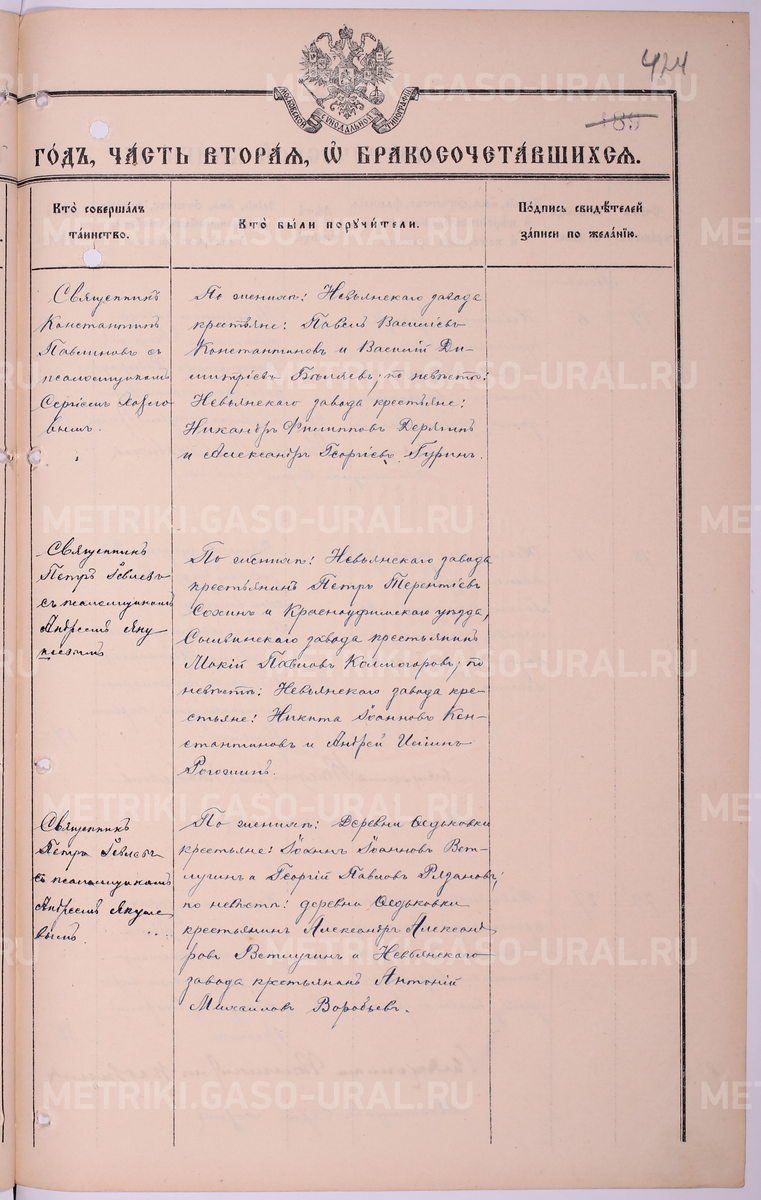 424
185
МОСКОВСКОЙ СѴНОДАЛЬНОЙ ТИПОГРАФІИ
ГО́ДЪ, ЧА́СТЬ ВТОРА́Я, Ѡ҆ БРАКОСОЧЕТА́ВШИХСЯ.
Кто̀ соверша́лъ
та́инство.
Кто̀ бы́ли порꙋчи́тели.
По́дпись свидѣ́телей
за́писи по жела́нїю.
Священникъ
Константинъ
Павлиновъ съ
псаломщикомъ
Сергіемъ
вымъ.
По женихѣ: Невьянскаго завода
крестьяне: Павелъ Василіевъ
Константиновъ и Василій Ди-
митріевъ Бѣляевъ; по невѣстѣ:
Невьянскаго завода крестьяне:
Никандръ Филипповъ Дерягинъ
и Александръ Георгіевъ Гуринъ.
Священникъ
Петръ Іевлевъ
съ псаломщикомъ
Андреемъ Яку
шевымъ
По женихѣ: Невьянскаго завода
крестьянинъ Петръ Терентіевъ
Сохинъ и Красноуфимскаго уѣзда,
Сылвинскаго завода крестьянинъ
Мокій Павловъ Колмогоровъ; по
невѣстѣ: Невьянскаго завода кре-
стьяне: Никита Іоанновъ Кон-
стантиновъ и Андрей Исіинъ
Рогожинъ.
Священникъ
Петръ Іевлевъ
съ псаломщикомъ
Андреемъ Якуше
вымъ.
По женихѣ: Деревни Ѳедьковки
крестьяне: Іоаннъ Іоанновъ Вет-
лугинъ и Георгій Павловъ Рязановъ;
по невѣстѣ: деревни Ѳедьковки
крестьянинъ Александръ Александ
ровъ Ветлугинъ и Невьянскаго
завода крестьянинъ Антоній
Михаиловъ Воробьевъ.
METRIKI.GASO-URAL.RU